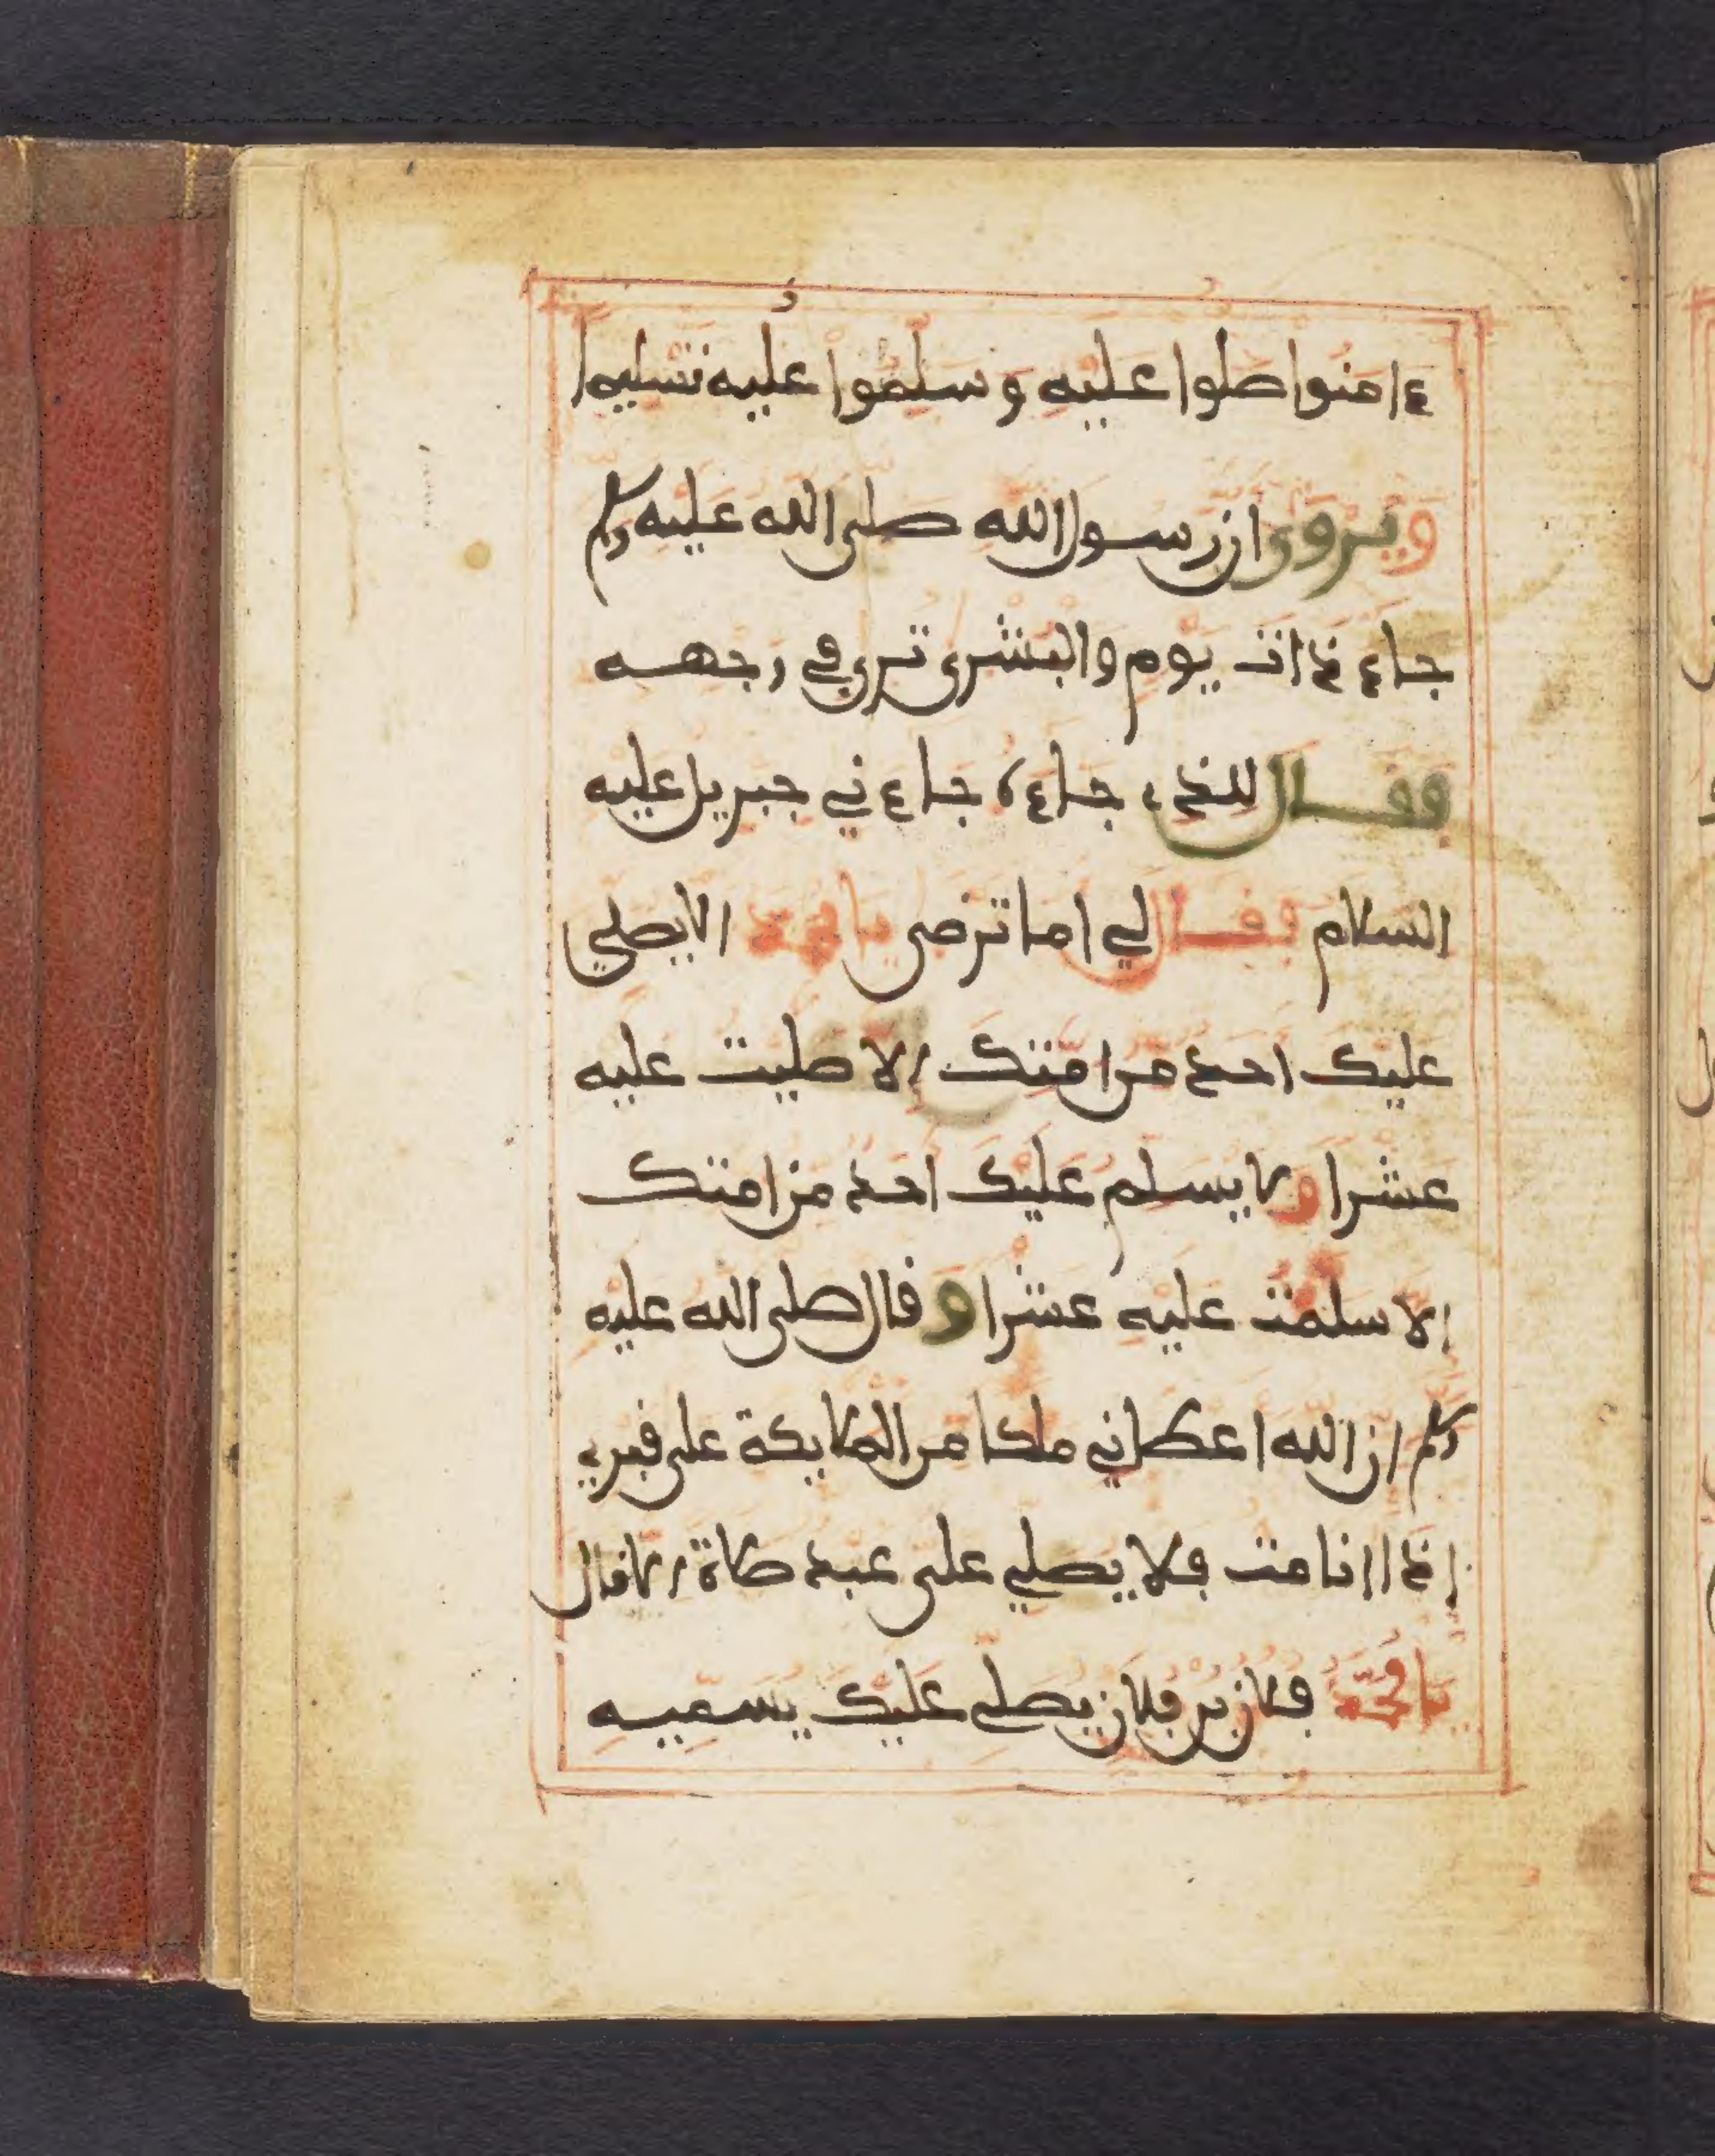 ءامنوا صلوا عليه وسلموا عليه تسليما
ويروى ان رسول الله صلى الله عليه وسلم
جاء ذات يوم والبشرى ترى في وجهه
فقال للذي جاءه جاءني جبريل عليه
السلام فقال لي اما ترضى يا محمد الا يصلي
عليك احد من امتك الا صليت عليه
عشرا ولا يسلم عليك احد من امتك
الا سلمت عليه عشرا وقال صلى الله عليه
وسلم ان الله اعطاني ملكا من الملايكة على قبري
اذا انا مت فلا يصلي علي عبد صلاة الا قال
يا محمد فلان بن فلان يصلي عليك يسميه